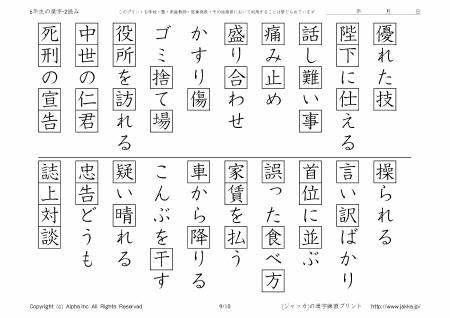 6年生の漢字-2読み
このプリントを学校・塾・家庭教師・医療機関・その他施設において利用することは禁じられています
年　月　日
優れた技
陛下に仕える
話し難い事
痛み止め
盛り合わせ
かすり傷
ゴミ捨て場
役所を訪れる
中世の仁君
死刑の宣告
操られる
言い訳ばかり
首位に並ぶ
誤った食べ方
家賃を払う
車から降りる
こんぶを干す
疑い晴れる
忠告どうも
誌上対談
Copyright (c) Alpha.Inc All Rights Reserved.
9/10
[ジャッカ]の漢字練習プリント
http://www.jakka.jp/